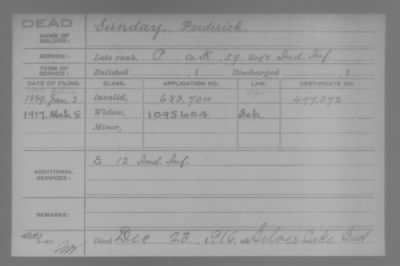 DEAD
NAME OF SOLDIER: Sunday, Frederick.
SERVICE: Late rank, P Co. K, 59 Reg't Ind. Inf
TERM OF SERVICE: Enlisted , 1 Discharged , 1
DATE OF FILING. CLASS. APPLICATION NO. LAW. CERTIFICATE NO.
1889, Jan. 3 Invalid, 683,700 477,872
1917, 8 Widow, 1095604
Minor,
ADDITIONAL SERVICES: E 12 Ind. Inf.
REMARKS:
Died Dec 23, 1916, at Silver Lake Ind